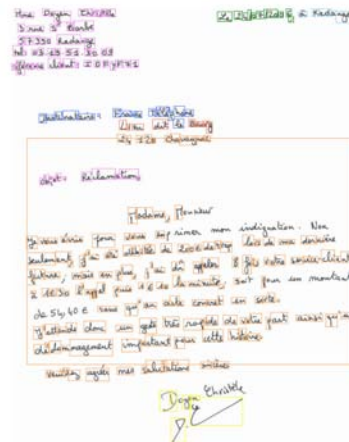 Mme Doyen Christèle
3 rue Ste Barbe
57330 Kadange
Le à Kadange
Destinataire: France Téléphone
Lieu dit le Bourg
120
Objet: Réclamation
Madame, Monsieur
Je vous écris pour vous exprimer mon indignation. Non
seulement, j'ai été débitée de 200€ de trop lors de ma dernière
facture, mais en plus, j'ai dû appeler 8 fois votre service client
à l'appel puis 1€ de la minute, soit pour un montant
de 54,40€ sans qu'un aide concret en sorte.
J'attends donc un geste très rapide de votre part ainsi qu'un
dédommagement important pour cette histoire.
Veuillez agréer mes salutations
Doyen Christèle